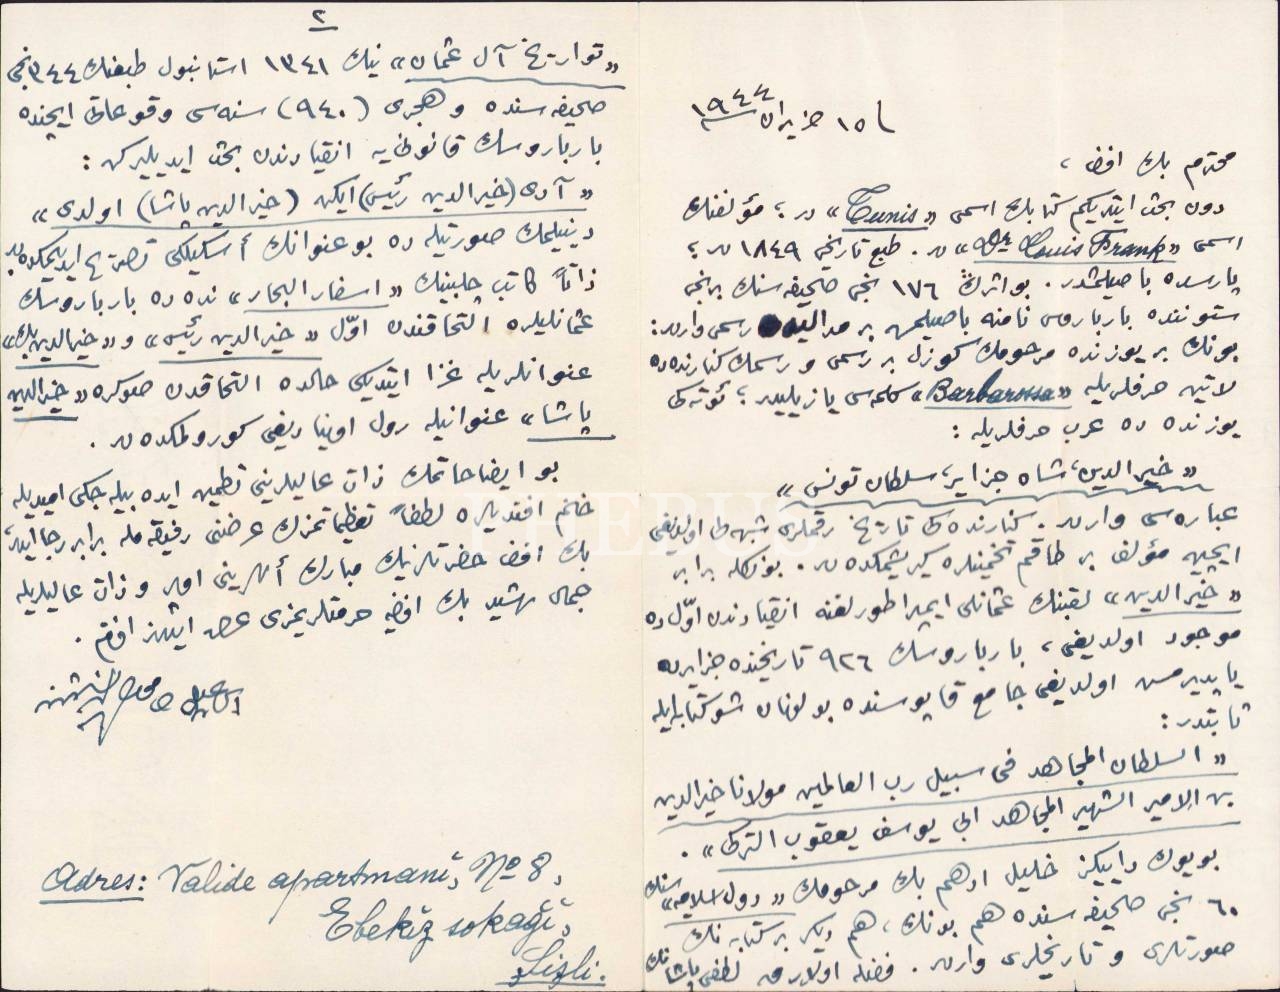 ١٥ حزیران ١٩٤٤
محترم بك افندی ،
دون بحث ایتدیکم کتابك اسمی «Tunis» در ؛ مؤلفنك
اسمی «Dr Louis Frank» در. طبع تاریخی ١٨٤٩ در ؛
پارسده باصیلمشدر. بو اثرك ١٧٦ نجی صحیفه سنك برنجی
ستوننده بارباروس نامنه باصیلمش بر مدالیه رسمی واردر:
بونك بر یوزنده مرحومك كوزل بر رسمی و رسمك كنارنده ده
لاتین حرفلریله «Barbarossa» كلمه سی یازیلیدر ؛ ئوته كی
یوزنده ده عرب حرفلریله :
«خیرالدین، شاه جزایر، سلطان تونس»
عباره سی واردر. كنارنده كی تاریخ رقملری شبهه لی اولدیغی
ایچین مؤلف بر طاقم تخمینلره كیریشمكده در. بونكله برابر
«خیرالدین» لقبنك عثمانلی ایمپراطورلغنه انقیادندن اوّل ده
موجود اولدیغی ، بارباروسك ٩٢٦ تاریخنده جزایرده
یاپدیرمش اولدیغی جامع قاپوسنده بولونان شو كتابه ایله
ثابتدر:
«السلطان المجاهد فی سبیل رب العالمین مولانا خیرالدین
بن الامیر الشهیر المجاهد ابی یوسف یعقوب التركی» .
بویوك دایكز خلیل ادهم بك مرحومك «دول اسلامیه» سنك
٦٠ نجی صحیفه سنده هم بونك ، هم دیكر بر كتابه نك
صورتلری و تاریخلری واردر. فضله اولارق لطفی پاشانك
٢
«تواریخ آل عثمان» نینك ١٣٤١ استانبول طبعنك ٣٤٤ نجی
صحیفه سنده و هجری (٩٤٠) سنه سی وقوعاتی ایچنده
بارباروسك قانونی یه انقیادندن بحث ایدیلیركن :
«آدی (خیرالدین رئیس) ایكن (خیرالدین پاشا) اولدی»
دینیلمك صورتیله ده بو عنوانك أسكیلكی تصریح ایدیلمكده در
ذاتاً كاتب چلبینك «اسفار البحار» نده ده بارباروسك
عثمانلیلره التحاقندن اوّل «خیرالدین رئیس» و «خیرالدین بك»
عنوانلریله غزا ایتدیكی حالده التحاقدن صوكره «خیرالدین
پاشا» عنوانیله رول اوینادیغی كورولمكده در .
بو ایضاحاتمك ذات عالیلرینی تطمین ایده بیله جكی امیدیله
خانم افندیلره لطفاً تعظیماتمزك عرضنی رفیقه مله برابر رجا ایدر،
بك افندی حضرتلرینك مبارك أللرینی اوپر و ذات عالیلریله
جمال رشید بك افندی یه حرمتلریمزی عرض ایدرز افندم .
اسماعیل حامی دانشمند
Adres: Valide apartmanı, No 8,
Ebekız sokağı,
Şişli.
PHEBUS